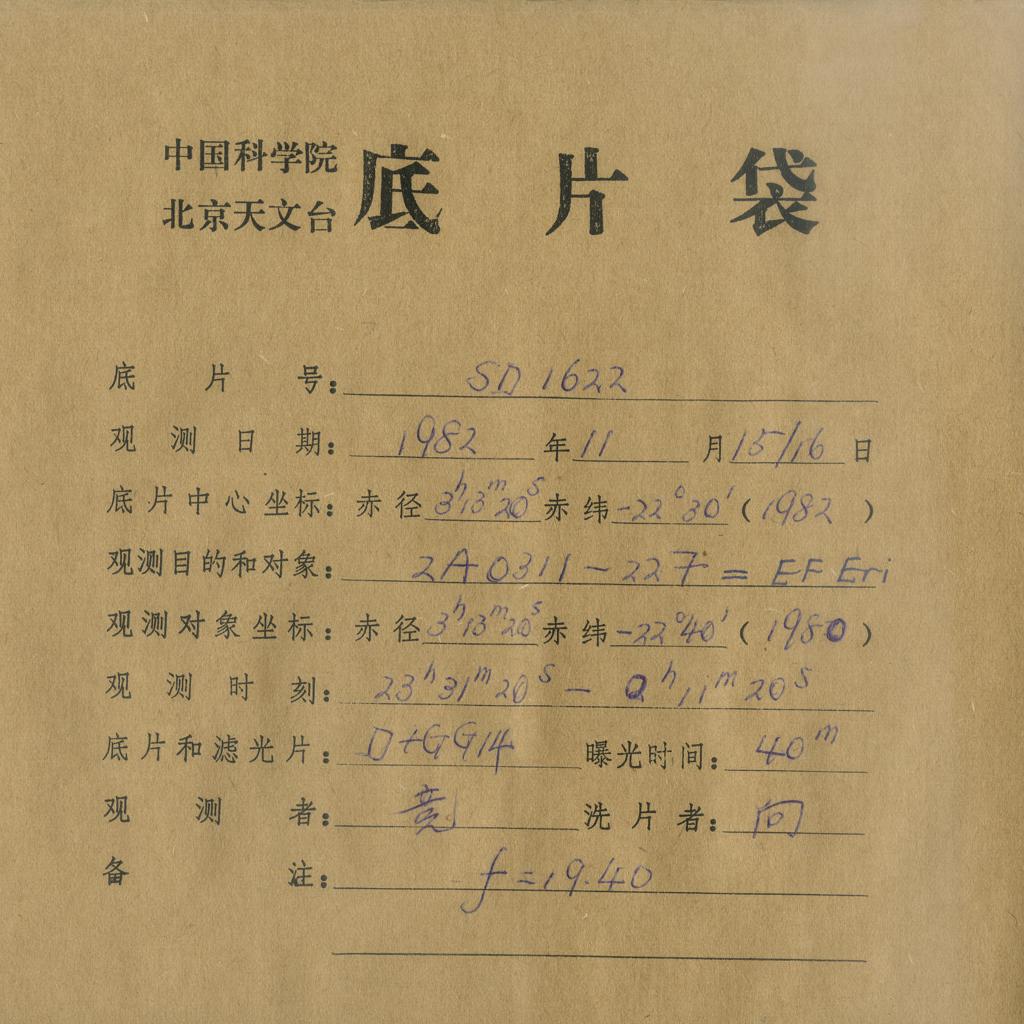 中国科学院
北京天文台 底片袋
底片号: SD 1622
观测日期: 1982 年 11 月 15/16 日
底片中心坐标: 赤径 3h13m20s 赤纬 -22°30′ (1982)
观测目的和对象: 2A0311-227 = EF Eri
观测对象坐标: 赤径 3h13m20s 赤纬 -22°40′ (1980)
观测时刻: 23h31m20s - 0h11m20s
底片和滤光片: D+GG14 曝光时间: 40m
观测者: 竞 洗片者: 向
备注: f=19.40